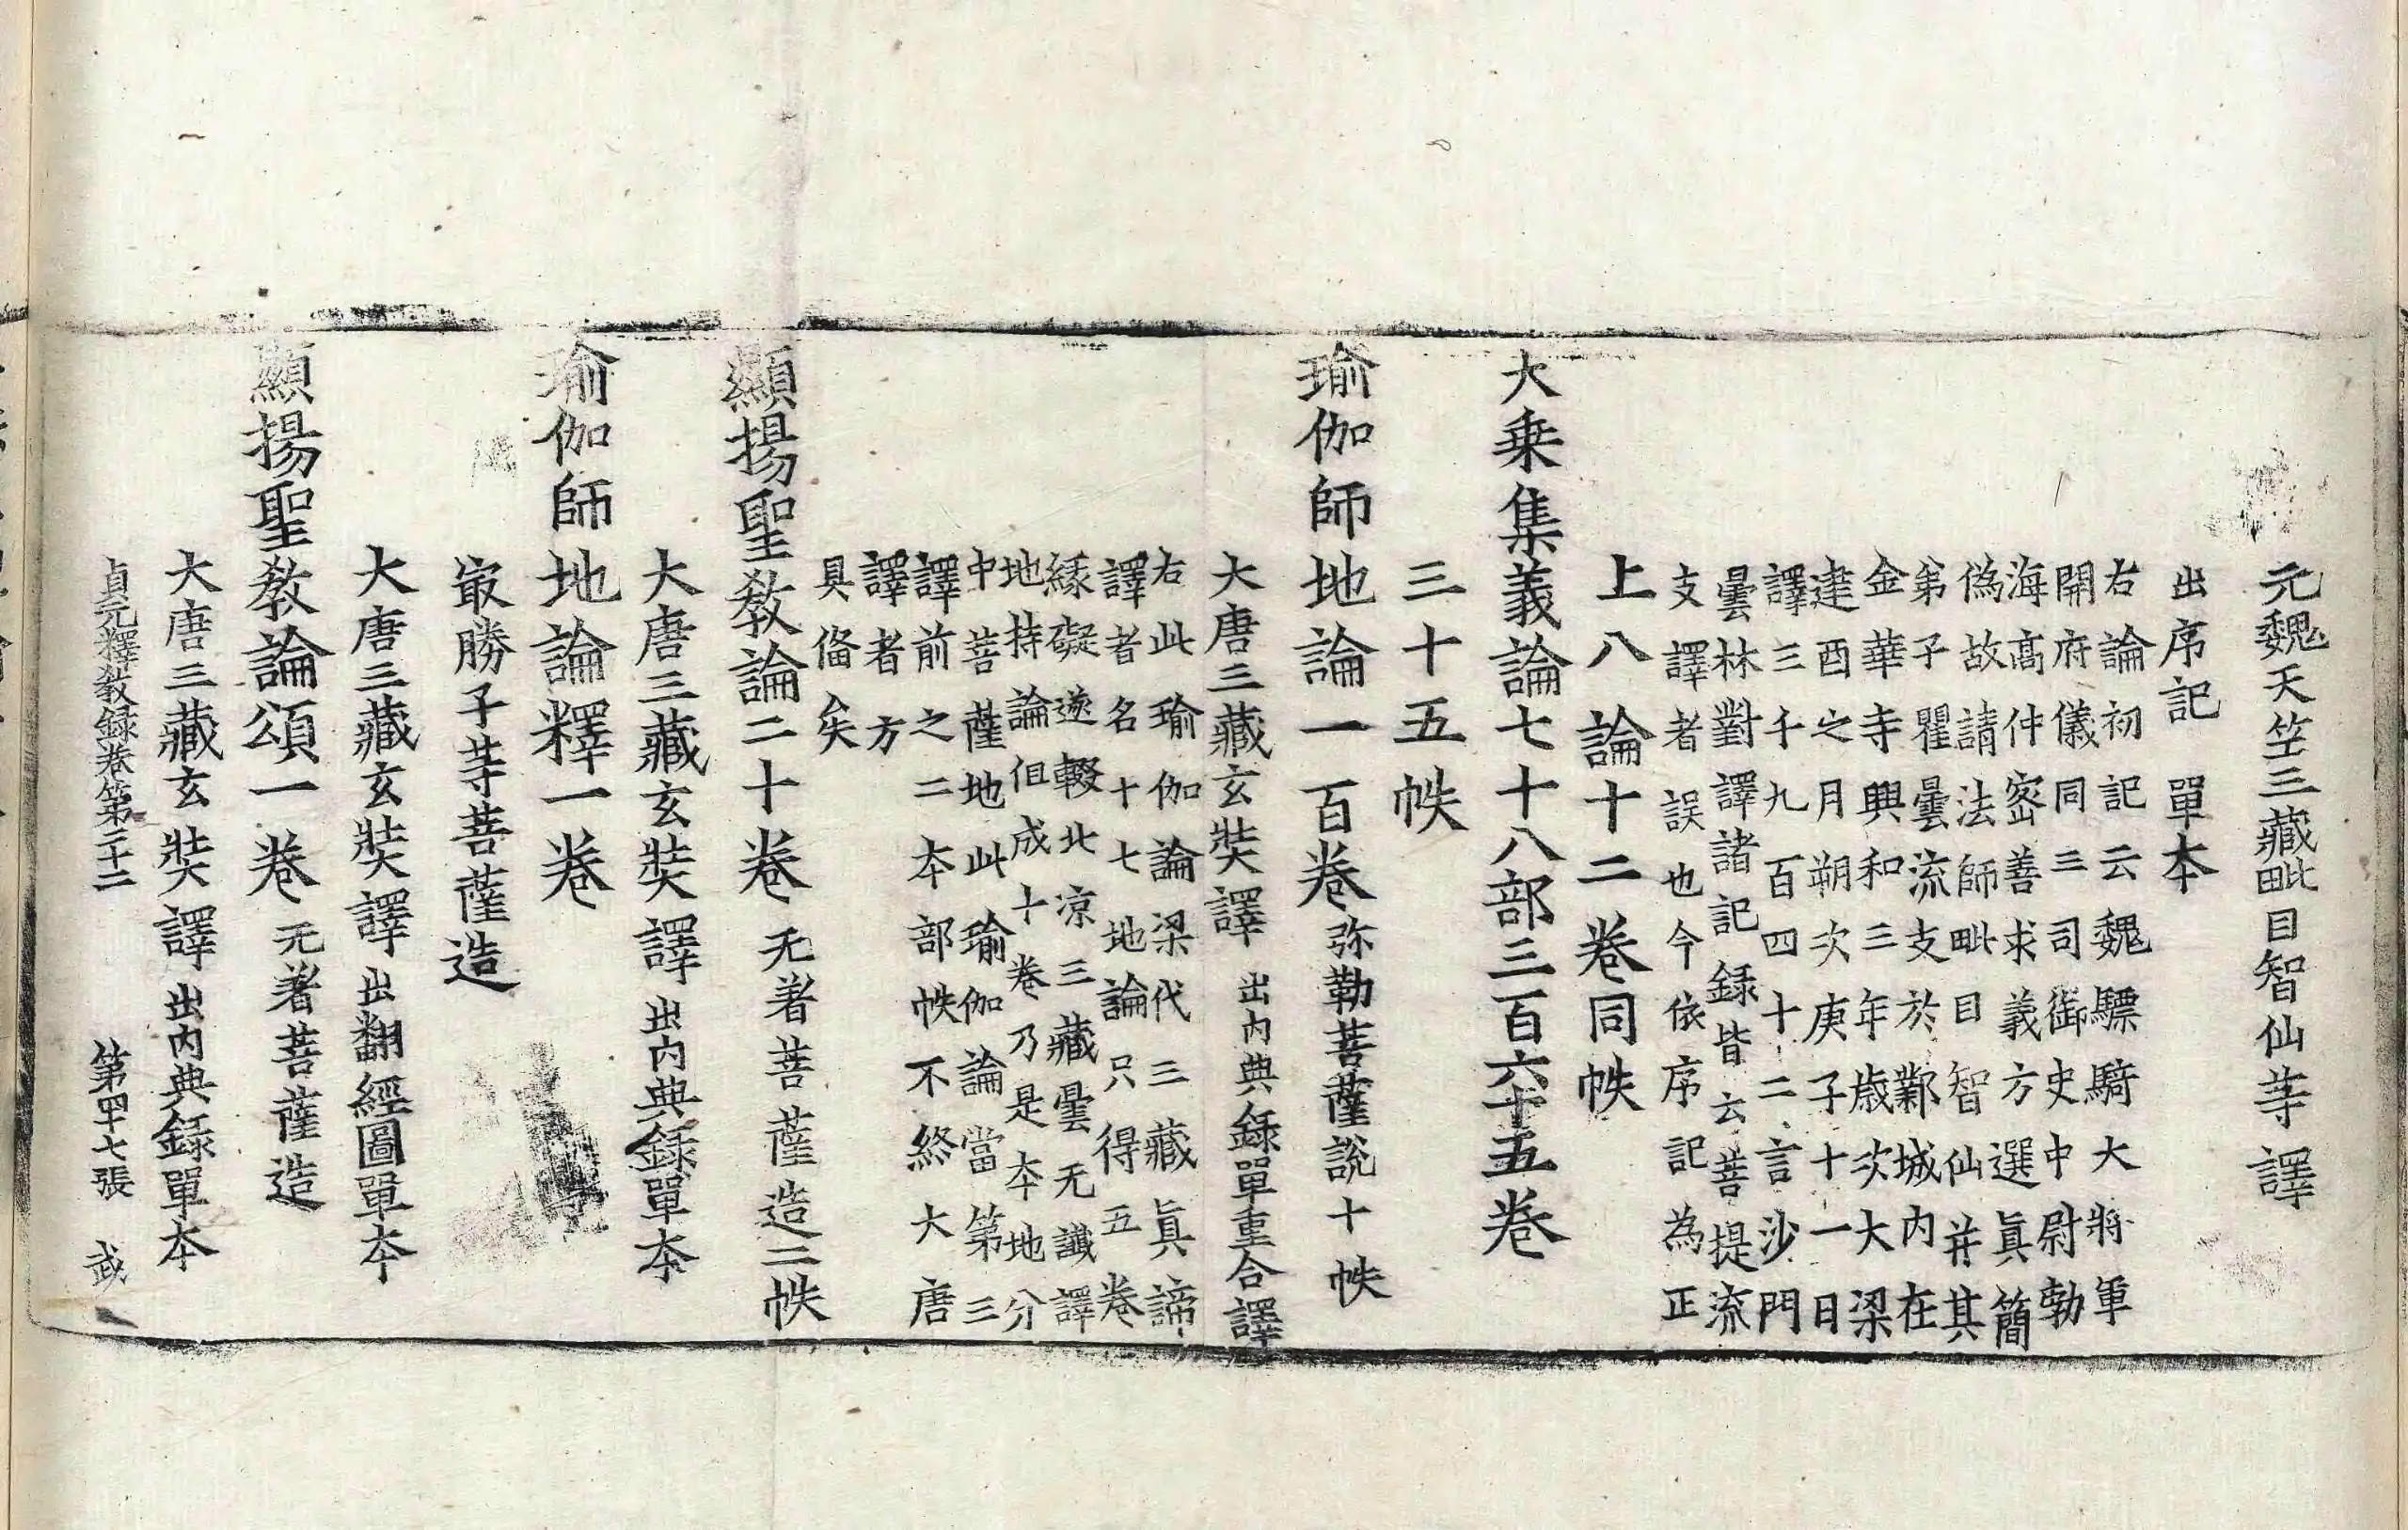 元魏天竺三藏毗目智仙䒭譯
出序記 單夲
右論初記云魏驃騎大將軍
開府儀同三司御史中尉勃
海髙仲宻善求義方選眞簡
偽故請法師毗目智仙并其
弟子瞿曇流支於鄴城内在
金華寺興和三年歳次大梁
建酉之月朔次庚子十一日
譯三千九百四十二言沙門
曇林對譯諸記録皆云菩提流
支譯者誤也今依序記為正
上八論十二卷同帙
大乗集義論七十八部三百六十五卷
三十五帙
瑜伽師地論一百卷 弥勒菩薩說十帙
大唐三藏玄奘譯 出内典録單重合譯
右此瑜伽論梁代三藏眞諦
譯者名十七地論只得五卷
緣礙遂輟北凉三藏曇无讖譯
地持論但成十卷乃是夲地分
中菩薩地此瑜伽論當第三
譯前之二夲部帙不終大唐
譯者方
具俻矣
顯揚聖教論二十卷 无著菩薩造二帙
大唐三藏玄奘譯 出内典録單夲
瑜伽師地論釋一卷
㝡勝子䒭菩薩造
大唐三藏玄奘譯 出翻經圖單夲
顯揚聖教論頌一卷 无著菩薩造
大唐三藏玄奘譯 出内典録單夲
貞元釋教録卷第二十二 第四十七張 武